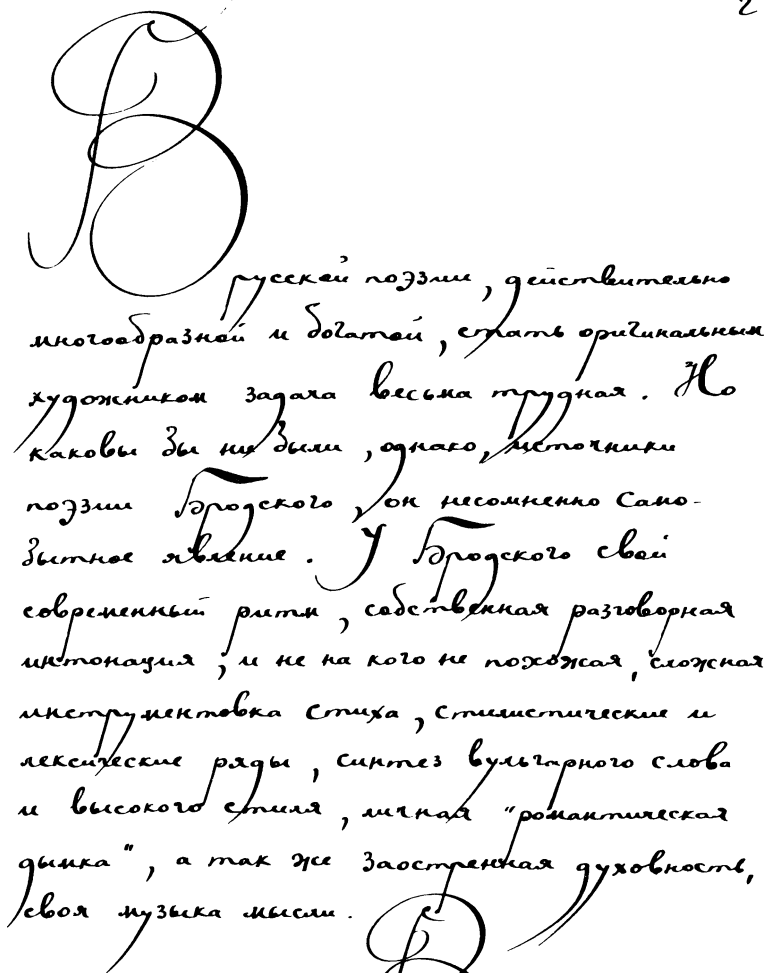 2
В
русской поэзии, действительно
многообразной и богатой, стать оригинальным
художником задача весьма трудная. Но
каковы бы ни были, однако, источники
поэзии Бродского, он несомненно само-
бытное явление. У Бродского свой
современный ритм, собственная разговорная
интонация, и не на кого не похожая, сложная
инструментовка стиха, стилистические и
лексические ряды, синтез вульгарного слова
и высокого стиля, личная "романтическая
дымка", а так же заостренная духовность,
своя музыка мысли. В